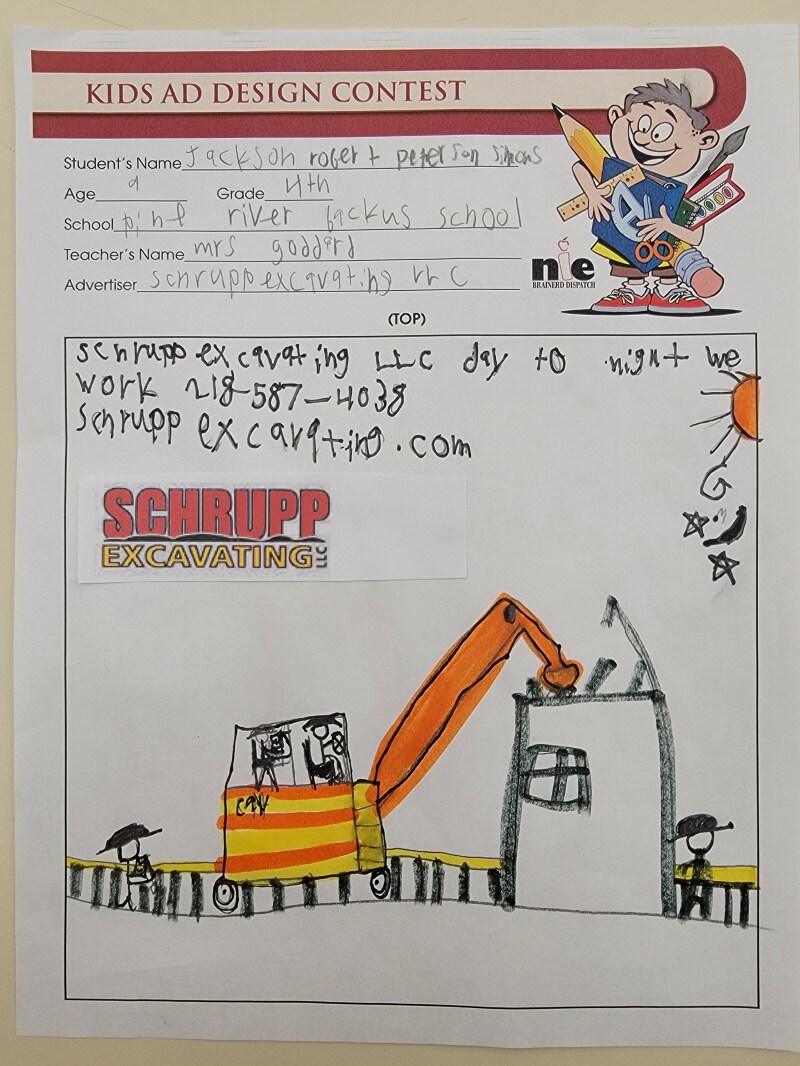 KIDS AD DESIGN CONTEST
Student's Name Jackson robert peterson simons
Age 9 Grade 4th
School pine river backus school
Teacher's Name mrs goddard
Advertiser schrupp excavating LLC
nie
BRAINERD DISPATCH
(TOP)
schrupp excavating LLC day to night we
work 218-587-4038
Schrupp excavating.com
SCHRUPP
EXCAVATING LLC